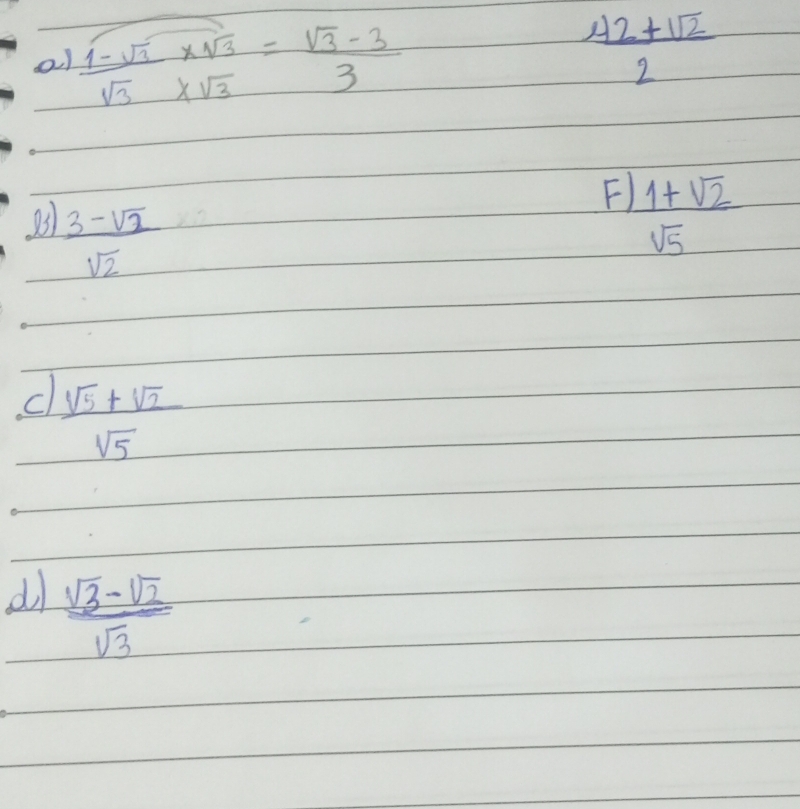 a) 1-√3 ×√3 = √3-3
√3 ×√3 3
2+√2
2
B) 3-√2
√2
F) 1+√2
√5
c) √5+√2
√5
d) √3-√2
√3